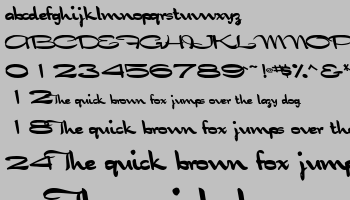 abcdefghijklmnopqrstuvwxyz
ABCDEFGHIJKLMNOP
0 123456789
12 The quick brown fox jumps over the lazy dog
18 The quick brown fox jumps over the
24 The quick brown fox jump